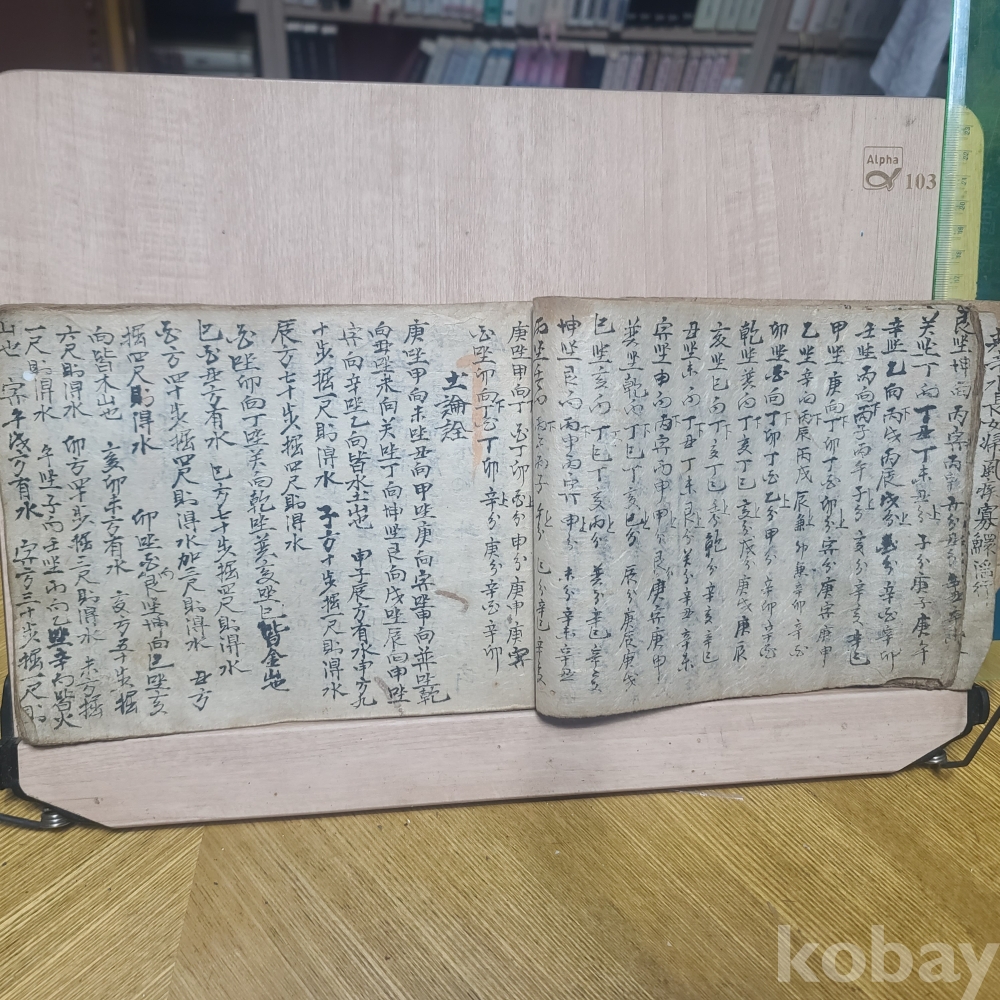 癸坐丁向 丁丑丁未 丑分 子分 庚子庚午
辛坐乙向 丙戌丙辰 戌分
壬坐丙向 丙子丙午 子分 亥分 辛亥辛巳
甲坐庚向 丁卯丁酉 卯分 寅分 庚寅庚申
乙坐辛向 丙辰丙戌 辰分 卯分 辛卯辛酉
卯坐酉向 丁卯丁酉 乙分 甲分 辛卯辛酉
乾坐巽向 丁亥丁巳 亥分 戌分 庚戌庚辰
亥坐巳向 丁亥丁巳 亥分 乾分 辛亥辛巳
丑坐未向 丁丑丁未 艮分 癸分 辛丑辛未
寅坐申向 丙寅丙申 甲分 艮分 庚寅庚申
巽坐乾向 丁巳丁亥 巳分 辰分 庚辰庚戌
巳坐亥向 丁巳丁亥 丙分 巽分 辛巳辛亥
坤坐艮向 丙申丙寅 申分 未分 辛未辛丑
庚坐甲向 丁酉丁卯 酉分 申分 庚申庚寅
酉坐卯向 丁酉丁卯 辛分 庚分 辛酉辛卯
土論詮
庚坐甲向未坐丑向甲坐庚向寅坐申向並坐乾
向丑坐未向癸坐丁向坤坐艮向戌坐辰向申坐
寅向辛坐乙向皆水土山也 申子辰方有水申方九
十步掘一尺則得水 子方十步掘一尺則得水
辰方七十步掘四尺則得水
酉坐卯向丁坐癸向乾坐巽亥坐巳皆金山也
巳酉丑方有水 巳方七十步掘四尺則得水
酉方四十步掘四尺則得水加二尺則得水 丑方
掘四尺則得水 卯坐酉艮坐坤向巳坐亥
向皆木山也 亥卯未方有水 亥方五十步掘
六尺則得水 卯方四十步掘二尺則得水 未方掘
一尺則得水 午坐子向壬坐丙向乙坐辛向皆火
山也 寅午戌方有水 寅方三十步掘一尺則
Alpha
103
kobay